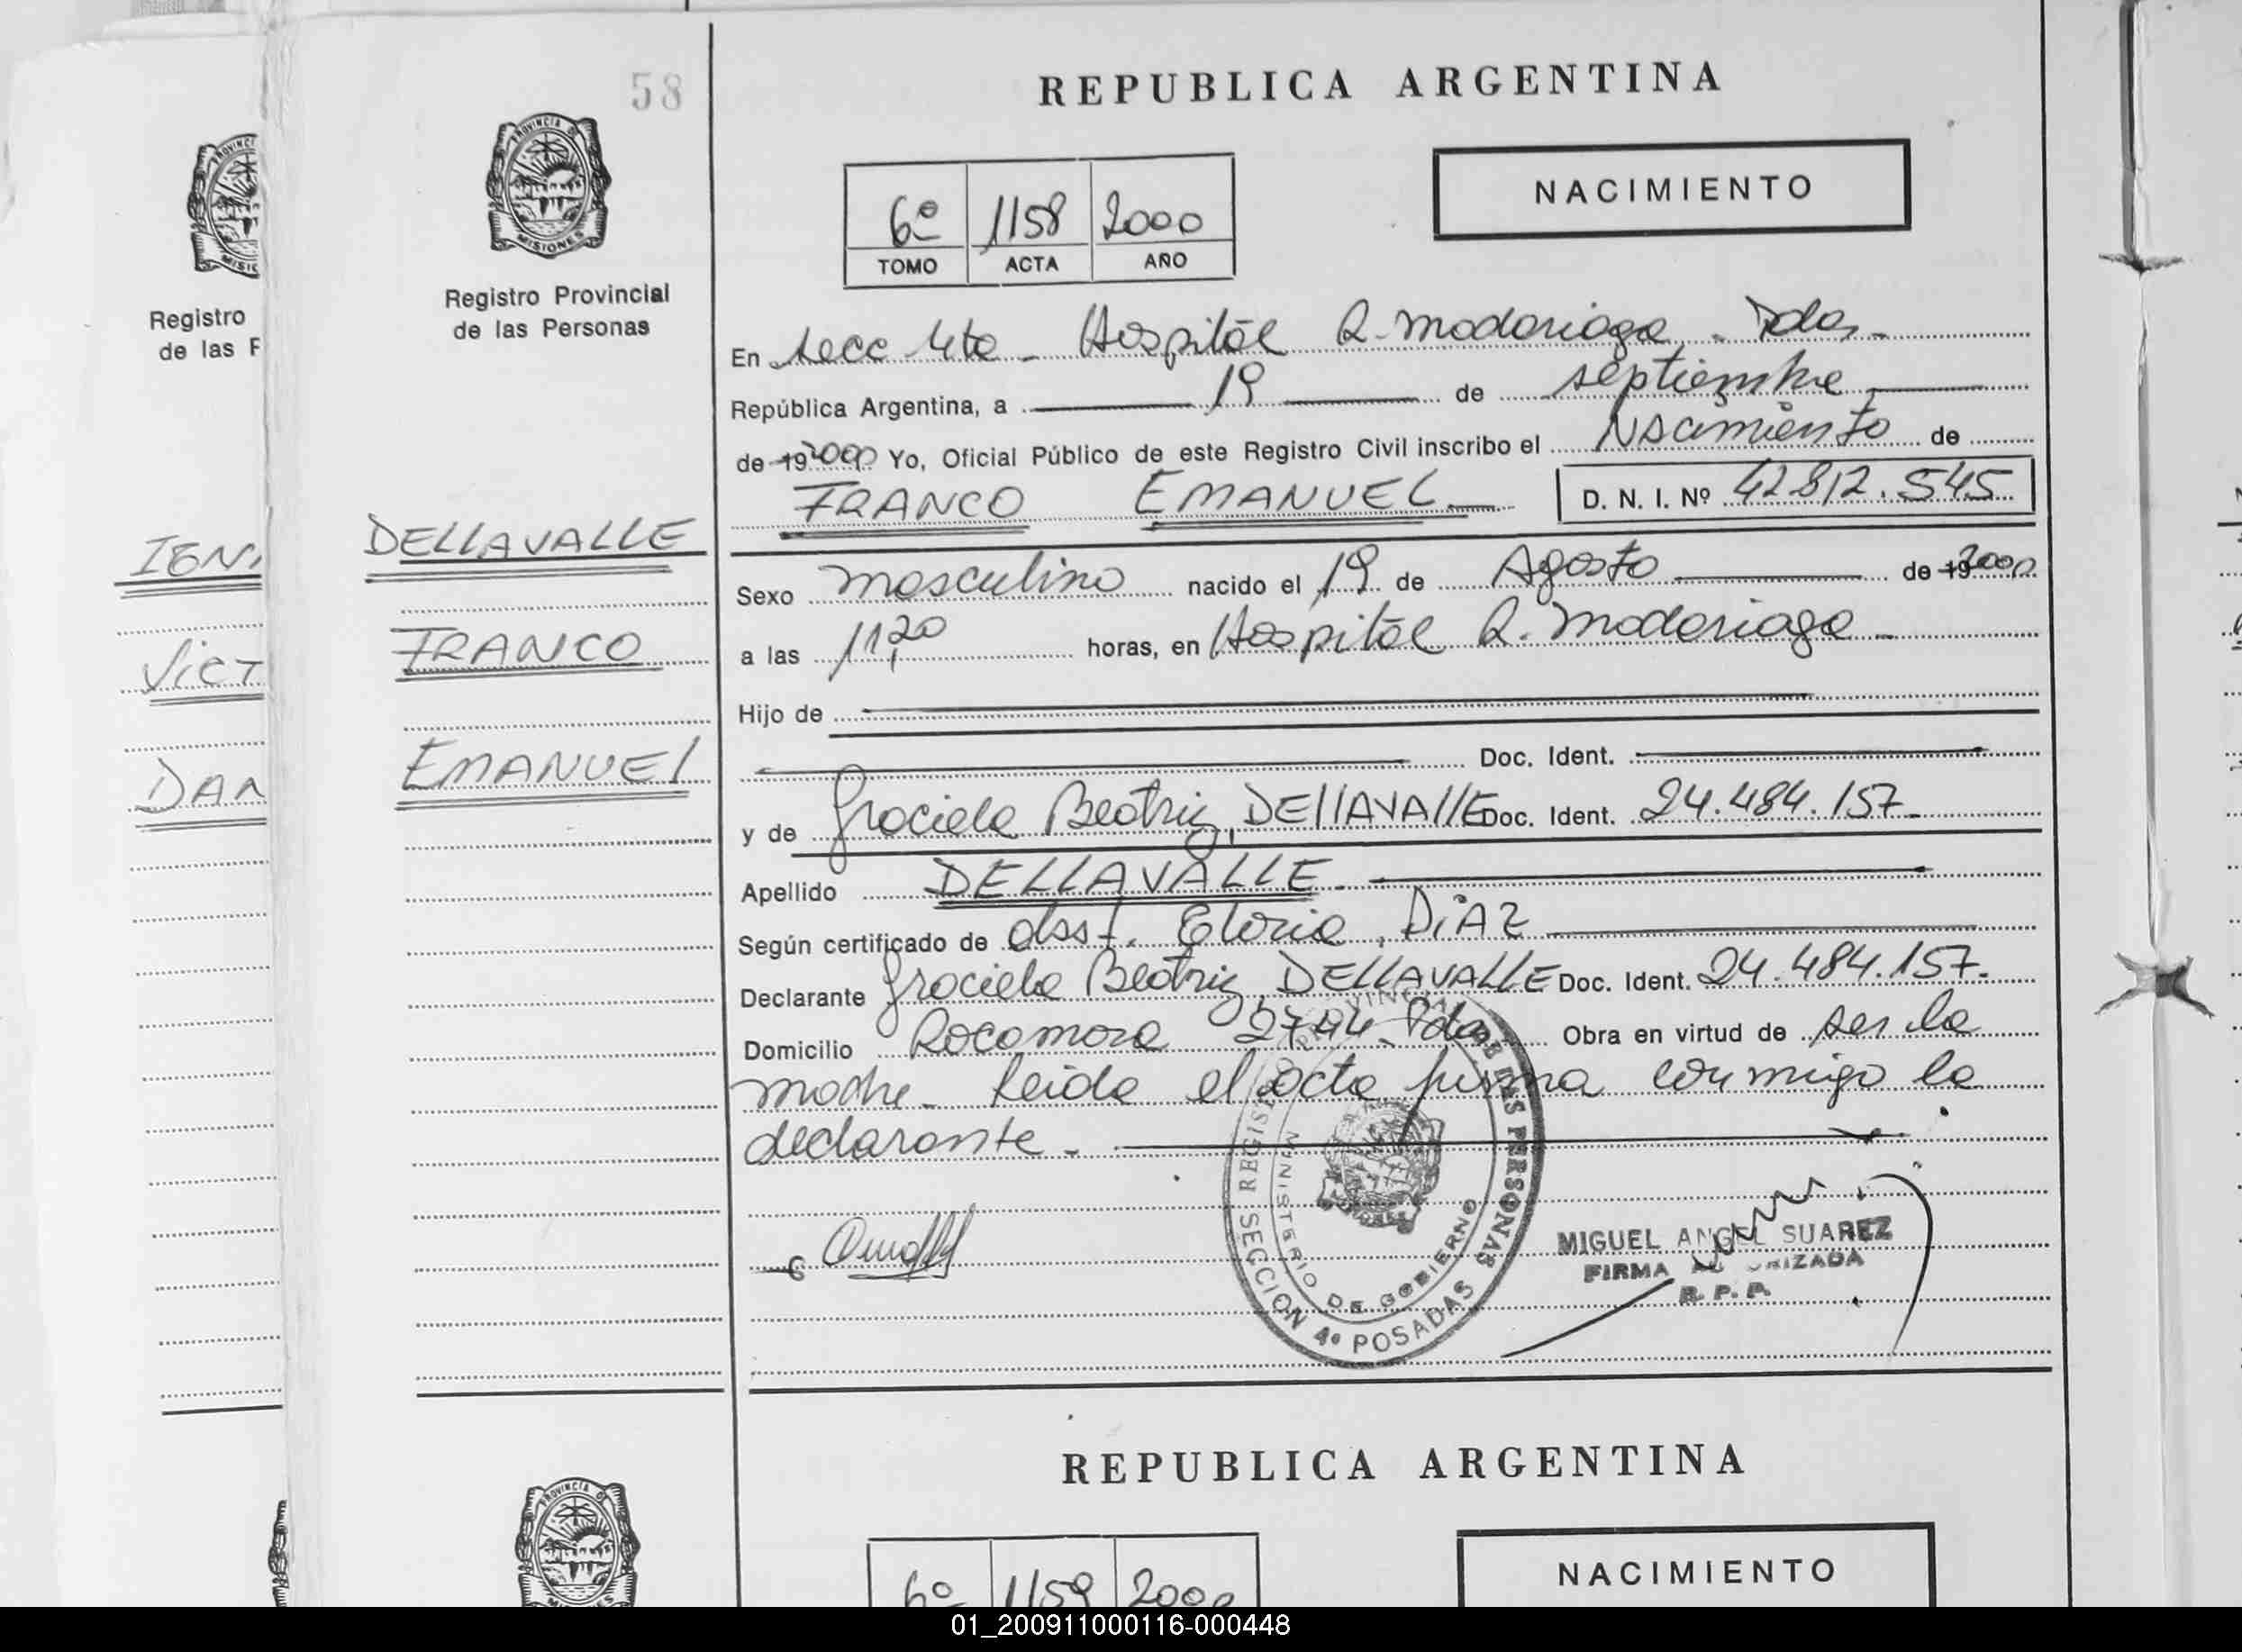 58
REPUBLICA ARGENTINA
PROVINCIA DE
MISIONES
NACIMIENTO
6º 1158 2000
TOMO ACTA AÑO
Registro
de las P
Registro Provincial
de las Personas
En Secc 4ta - Hospital R. Madariaga - Pdas -
República Argentina, a 19 de septiembre
de 192000 Yo, Oficial Público de este Registro Civil inscribo el Nacimiento de
FRANCO EMANUEL D. N. I. Nº 42812.545
IGN
DELLAVALLE
Sexo masculino nacido el 19 de Agosto de 192000
VICT
FRANCO
a las 11,20 horas, en Hospital R. Madariaga -
Hijo de
DAN
EMANUEL
Doc. Ident.
y de Graciela Beatriz, DELLAVALLE Doc. Ident. 24.484.157 -
Apellido DELLAVALLE.
Según certificado de obst. Gloria, DIAZ
Declarante Graciela Beatriz, DELLAVALLE Doc. Ident. 24.484.157.
Domicilio Rocamora 2744 - Pdas Obra en virtud de ser la
madre - Leida el acta firma conmigo la
declarante -
REGISTRO PROVINCIAL DE LAS PERSONAS
MINISTERIO DE GOBIERNO
SECCION 4º POSADAS
MIGUEL ANGEL SUAREZ
FIRMA AUTORIZADA
R. P. P.
REPUBLICA ARGENTINA
PROVINCIA DE
MISIONES
NACIMIENTO
6º 1159 2000
01_200911000116-000448